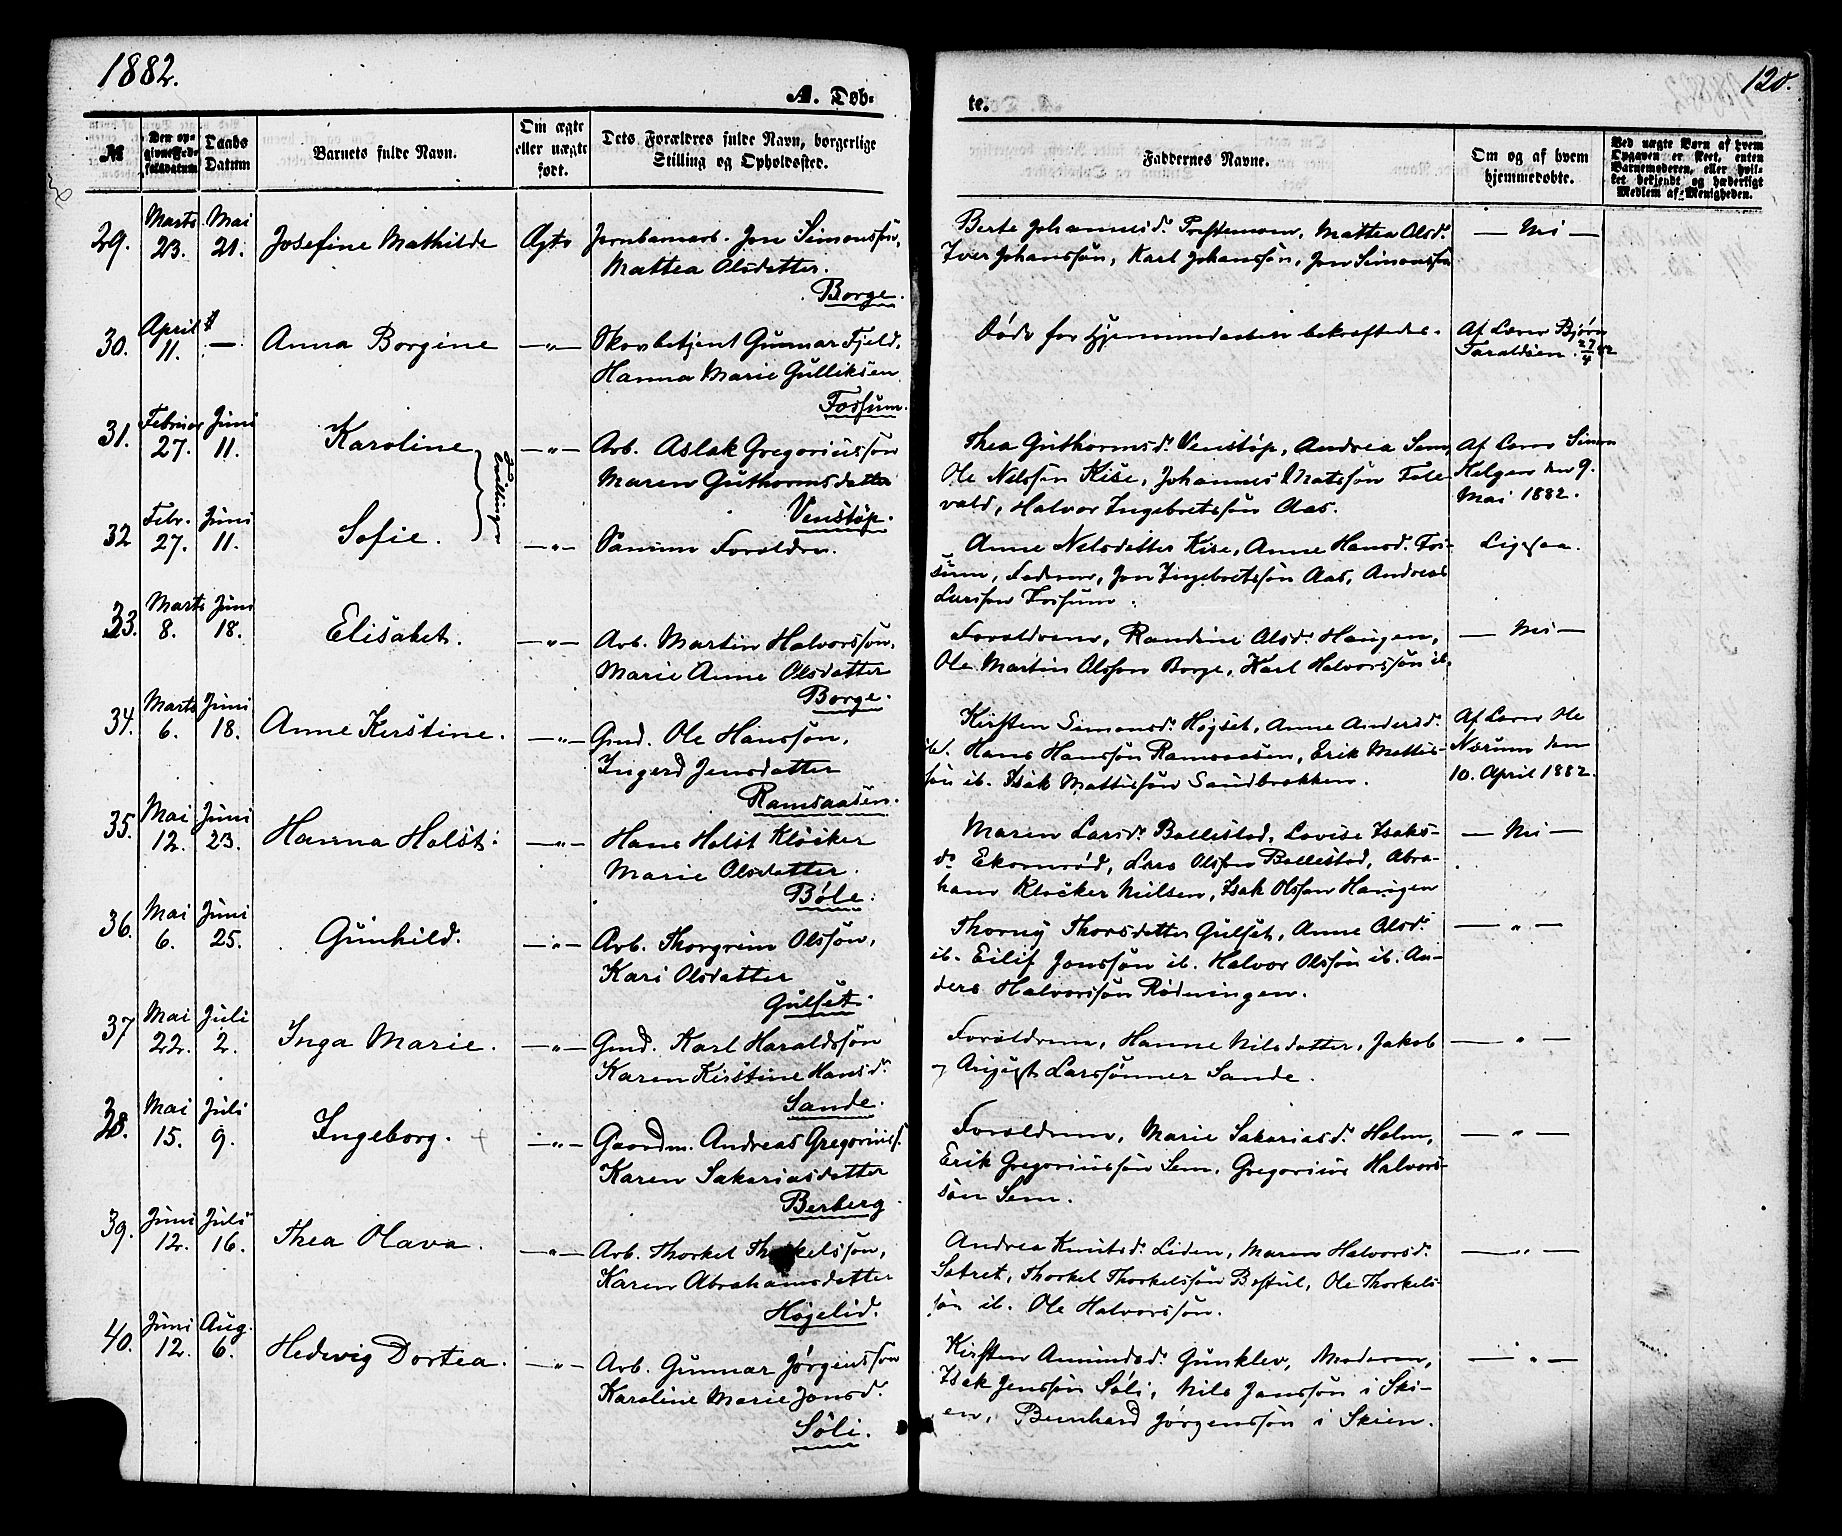 1882.
A. Døb-
№
Den opgivne Fødselsdatum
Daabs Datum
Barnets fulde Navn.
Om ægte eller uægte født.
Dets Forældres fulde Navn, borgerlige Stilling og Opholdssted.
29. Marts 23. Mai 21. Josefine Mathilde Ægte Jernbanearb. Jon Simonssøn,
Mattea Olsdatter.
Borge.
30. April 11. — Anna Borgine —"— Skovbetjent Gunnar Fjeld,
Hanna Marie Gulliksen
Fossum.
31. Februar 27. Juni 11. Karoline Tvillinger —"— Arb. Aslak Gregoriussøn
Maren Guthormsdatter
Venstøp.
32 Febr. 27. Juni 11. Sofie. —"— Samme Forældre.
33. Marts 8. Juni 18. Elisabet. —"— Arb. Martin Halvorssøn,
Marie Anne Olsdatter
Borge.
34. Marts 6. Juni 18. Anne Kirstine. —"— Gmd. Ole Hanssøn,
Ingerd Jensdatter
Ramsaasen.
35. Mai 12. Juni 23. Hanna Holst. —"— Hans Holst Kløcker
Marie Olsdatter.
Bøle.
36. Mai 6. Juni 25. Gunhild. —"— Arb. Thorgrim Olssøn,
Kari Olsdatter
Gulset.
37 Mai 22. Juli 2. Inga Marie. —"— Gmd. Karl Haraldssøn
Karen Kirstine Hansd.
Sande.
38. Mai 15. Juli 9. Ingeborg. —"— Gaardm. Andreas Gregoriuss.
Karen Sakariasdatter
Berberg
39. Juni 12. Juli 16. Thea Olava. —"— Arb. Thorkel Thorkelssøn,
Karen Abrahamsdatter
Høgelid.
40. Juni 12. Aug. 6. Hedevig Dortea. —"— Arb. Gunnar Jørgenssøn
Karoline Marie Jonsd.
Søli.
te.
120.
Faddernes Navne.
Om og af hvem hjemmedøbte.
Ved uægte Børn af hvem Opgaven er skeet, enten Barnemoderen, eller hvilket bekjendt og hæderligt Medlem af Menigheden.
Berte Johannesd. Mattea Olsd. — Nei —
Iver Johanssøn, Karl Johanssøn, Jon Simonssøn
Døde før Hjemmedaaben bekræftedes. Af Lærer Bjørn
Taraldsen. 27/4 82
Thea Guthormsd. Venstøp, Andrea Sem, Af Lærer Simon
Ole Nelssøn Kise, Johannes Matssøn Fale- Helgen den 9.
vald, Halvor Ingebretssøn Aas. Mai 1882.
Anne Nelsdatter Kise, Anne Hansd. Fos- Ligesaa.
sum, Faderen, Jon Ingebretssøn Aas, Andreas
Larssøn Fossum.
Forældrene, Randine Olsd. Haugen, — Nei —
Ole Martin Olssøn Borge, Karl Halvorssøn ib.
Kirsten Simonsd. Højset, Anne Andersd. Af Lærer Ole
ib. Hans Hanssøn Ramsaasen, Erik Mattis- Nærum den
søn ib. Isak Mattissøn Sandbrækken. 10. April 1882.
Maren Larsd. Ballestad, Lovise Isaks- — Nei —
d. Ekornrød, Lars Olssøn Ballestad, Abra-
ham Kløcker Nielsen, Isak Olssøn Haugen
Thorny Thorsdatter Gulset, Anne Olsd. — " —
ib. Eilif Jonssøn ib. Halvor Olssøn ib. An-
ders Halvorssøn Rødningen.
Forældrene, Hanne Nilsdatter, Jakob — " —
og August Larssønner Sande.
Forældrene, Marie Sakariasd. Holm, — " —
Erik Gregoriussøn Sem, Gregorius Halvors-
søn Sem.
Andrea Knutsd. Liden, Maren Halvorsd. — " —
Sætret, Thorkel Thorkelssøn Bestul, Ole Thorkels-
søn ib. Ole Halvorssøn.
Kirsten Amundsd. Gunklev, Moderen, — " —
Isak Jenssøn Søli, Nils Janssøn i Ski-
en, Bernhard Jørgenssøn i Skien.